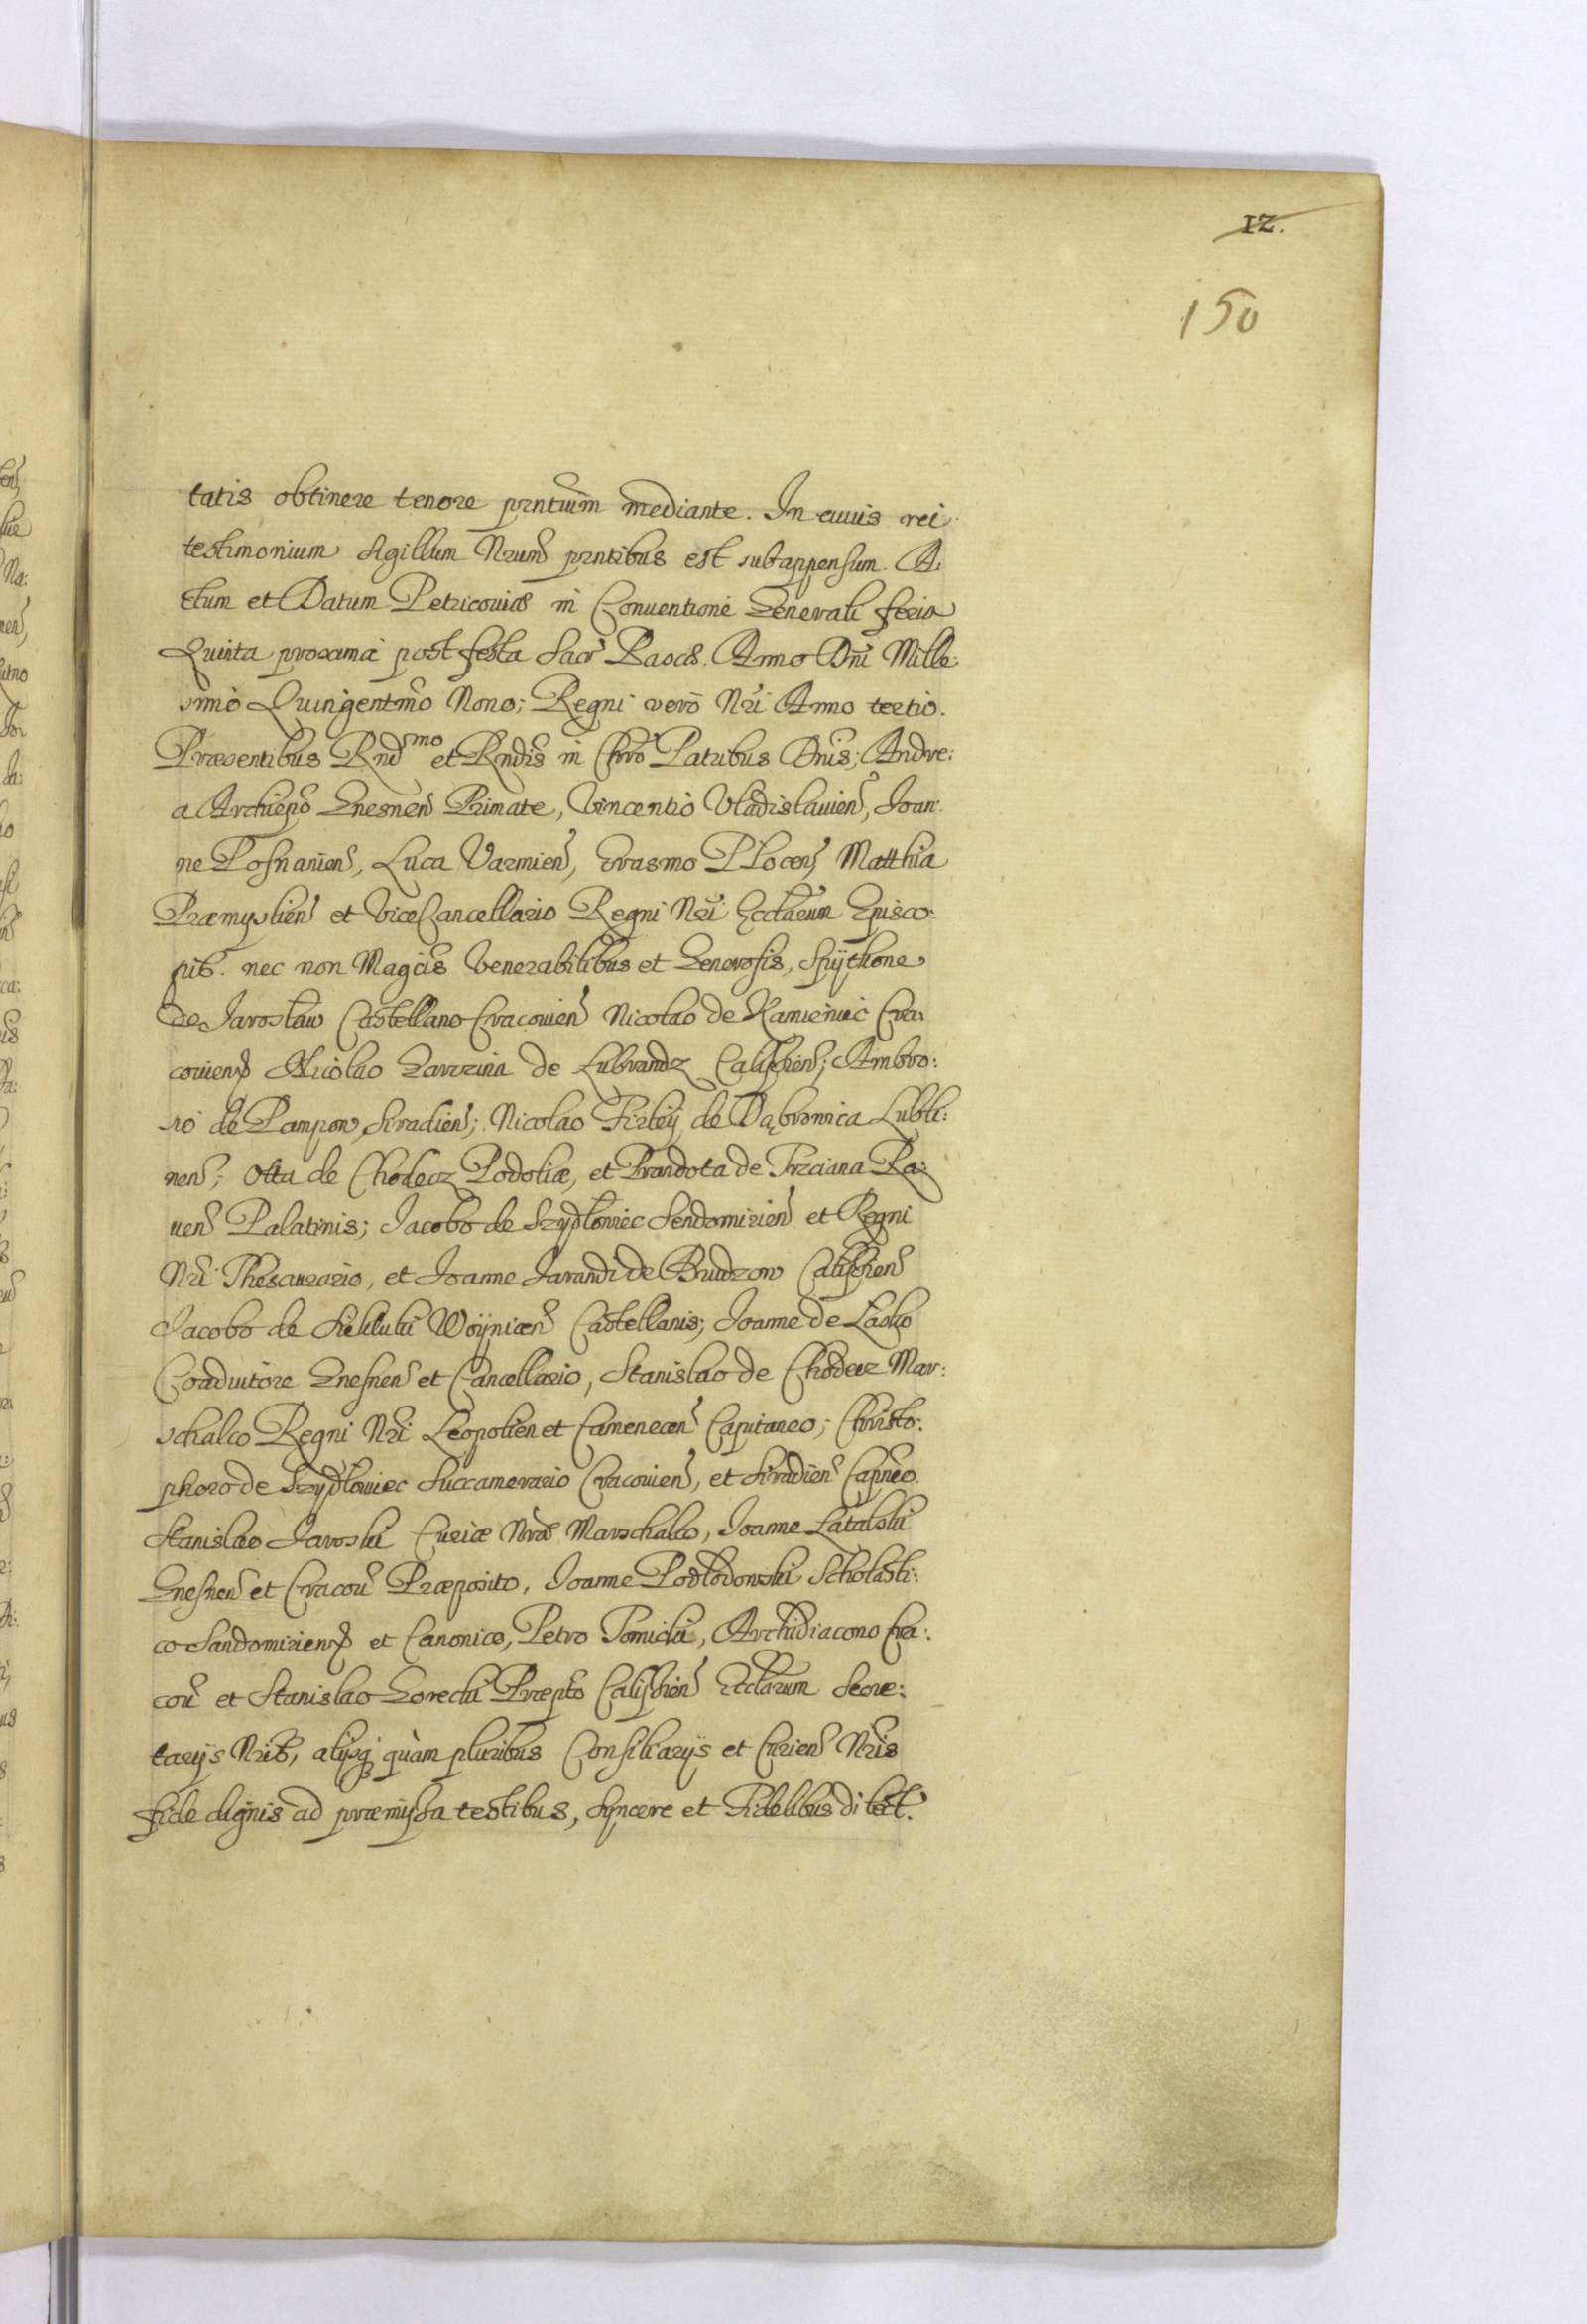 12.
150
tatis obtinere tenore prntium mediante. In cuius rei
testimonium Sigillum Nrum prntibus est subappensum. A:
ctum et Datum Petricoviæ in Conventione Generali feria
Quinta proxima post festa Sacr Pasce. Anno Dni Mille:
simo Quingentmo Nono; Regni vero Nri Anno tertio.
Præsentibus Rndmo et Rndis in Chro Patribus Dnis; Andre:
a Archiepo Gnesnen Primate, Vincentio Vladislavien, Joan:
ne Posnanien, Luca Varmien, Erasmo Plocen, Matthia
Præmyslien et ViceCancellario Regni Nri Ecclarum Episco:
pis. nec non Magcis Venerabilibus et Generosis, Spijthone
de Jaroslaw Castellano Cracovien Nicolao de Kamieniec Cra:
covien Nicolao Gardzina de Lubrandz Calischien; Ambro:
sio de Pampow Siradien; Nicolao Firleij de Dąbrowica Lubli:
nen; Otta de Chodecz Podoliæ, et Prandota de Trzciana Ra:
ven Palatinis; Jacobo de Szydlowiec Sendomirien et Regni
Nri Thesaurario, et Joanne Jarandi de Brudzow Calischien
Jacobo de Sieklukii Woijnicen Castellanis; Joanne de Lasko
Coadiutore Gnesnen et Cancellario, Stanislao de Chodecz Mar:
schalco Regni Nri Leopolien et Camenecen Capitaneo; Christo:
phoro de Szydlowiec Succamerario Cracovien, et Siradien Capneo.
Stanislao Jaroski Curiæ Nræ Marschalco, Joanne Latalski
Gnesnen et Cracov Præposito, Joanne Podlodowski Scholasti:
co Sandomirien et Canonico, Petro Tomicki, Archidiacono Cra:
cov et Stanislao Gorecki Præpto Calischien Ecclarum Secre:
tarijs Nris, alijsq quàm pluribus Consiliarijs et Curien Nris
fide dignis ad præmissa testibus, Syncere et Fidelibus dilect.